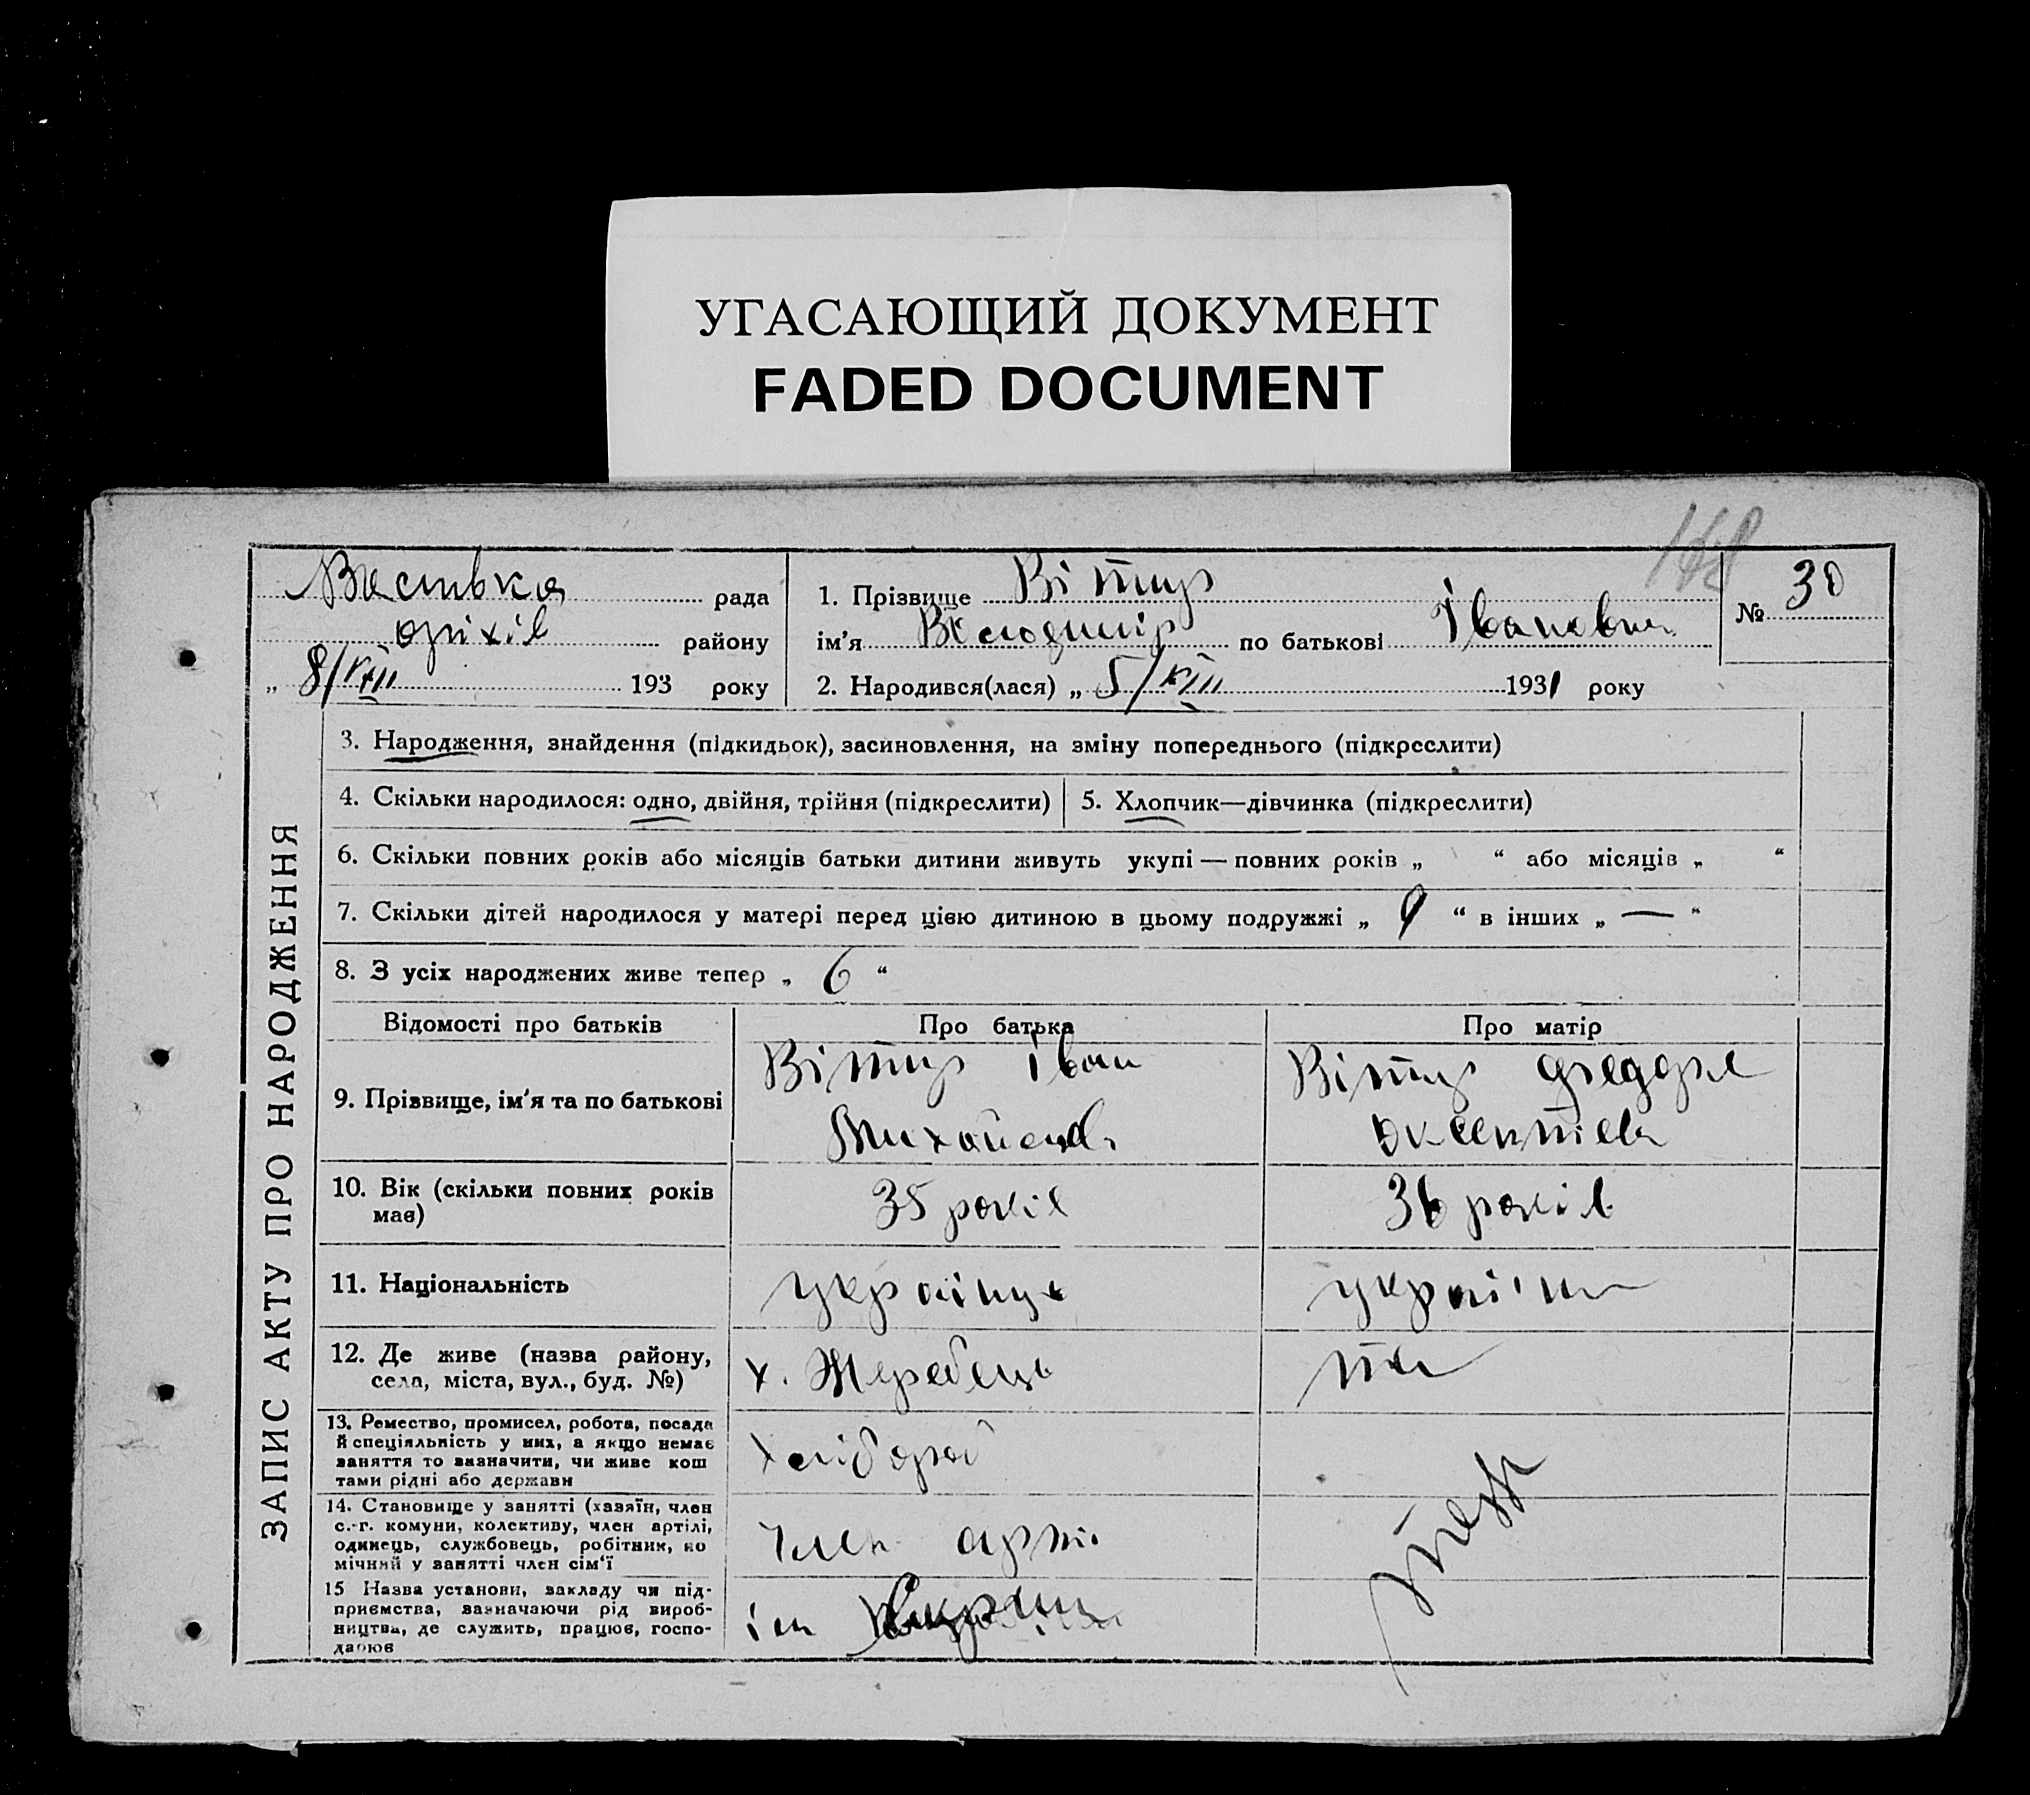 УГАСАЮЩИЙ ДОКУМЕНТ
FADED DOCUMENT
168
рада
оріхів району
„ 8/VIII 193 року
1. Прізвище Вітир
ім’я Володимір по батькові Іванович
№ 30
2. Народився(лася) „ 5/VIII 1931 року
ЗАПИС АКТУ ПРО НАРОДЖЕННЯ
3. Народження, знайдення (підкидьок), засиновлення, на зміну попереднього (підкреслити)
4. Скільки народилося: одно, двійня, трійня (підкреслити)
5. Хлопчик—дівчинка (підкреслити)
6. Скільки повних років або місяців батьки дитини живуть укупі — повних років „ “ або місяців „ “
7. Скільки дітей народилося у матері перед цією дитиною в цьому подружжі „ 9 “ в інших „ — “
8. З усіх народжених живе тепер „ 6 “
Відомості про батьків
Про батька
Про матір
9. Прізвище, ім’я та по батькові
Вітир Іван
Вітир Федора
10. Вік (скільки повних років
має)
35 років
36 років
11. Національність
українць
україн
12. Де живе (назва району,
села, міста, вул., буд. №)
х. Жеребець
та
13. Ремество, промисел, робота, посада
й спеціяльність у них, а якщо немає
заняття то зазначити, чи живе кош
тами рідні або держави
хлібороб
14. Становище у занятті (хазяїн, член
с.-г. комуни, колективу, член артілі,
одинець, службовець, робітник, по
мічний у занятті член сім‘ї
член арті
15 Назва установи, закладу чи під-
приємства, зазначаючи рід вироб-
ництва, де служить, працює, госпо-
дарює
ім